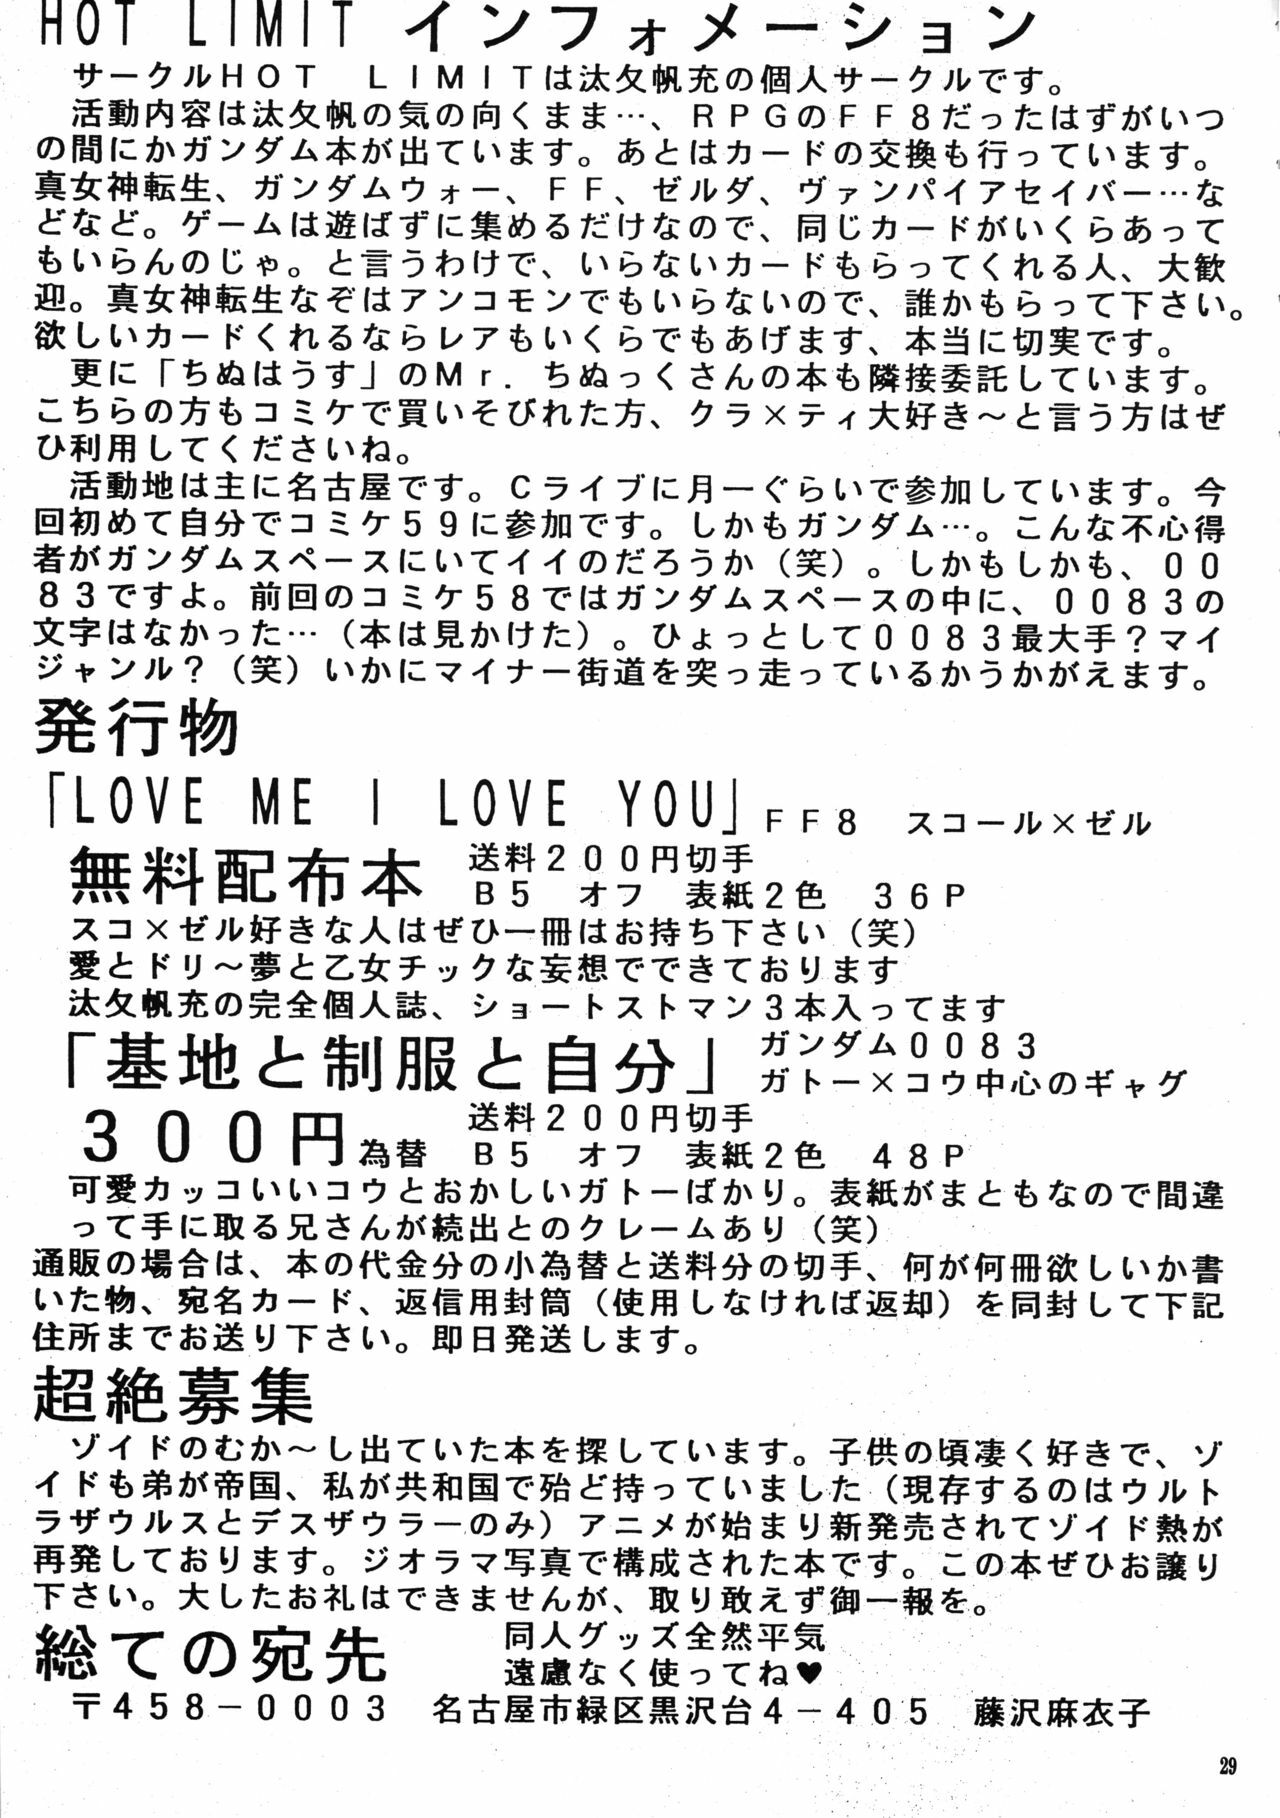 HOT LIMIT インフォメーション
サークルHOT LIMITは汰攵帆充の個人サークルです。
活動内容は汰攵帆の気の向くまま…、RPGのFF8だったはずがいつ
の間にかガンダム本が出ています。あとはカードの交換も行っています。
真女神転生、ガンダムウォー、FF、ゼルダ、ヴァンパイアセイバー…な
どなど。ゲームは遊ばずに集めるだけなので、同じカードがいくらあって
もいらんのじゃ。と言うわけで、いらないカードもらってくれる人、大歓
迎。真女神転生なぞはアンコモンでもいらないので、誰かもらって下さい。
欲しいカードくれるならレアもいくらでもあげます、本当に切実です。
更に「ちぬはうす」のMr.ちぬっくさんの本も隣接委託しています。
こちらの方もコミケで買いそびれた方、クラ×ティ大好き～と言う方はぜ
ひ利用してくださいね。
活動地は主に名古屋です。Cライブに月一ぐらいで参加しています。今
回初めて自分でコミケ59に参加です。しかもガンダム…。こんな不心得
者がガンダムスペースにいてイイのだろうか（笑）。しかもしかも、00
83ですよ。前回のコミケ58ではガンダムスペースの中に、0083の
文字はなかった…（本は見かけた）。ひょっとして0083最大手？マイ
ジャンル？（笑）いかにマイナー街道を突っ走っているかうかがえます。
発行物
「LOVE ME I LOVE YOU」FF8 スコール×ゼル
無料配布本 送料200円切手
B5 オフ 表紙2色 36P
スコ×ゼル好きな人はぜひ一冊はお持ち下さい（笑）
愛とドリ～夢と乙女チックな妄想でできております
汰攵帆充の完全個人誌、ショートストマン3本入ってます
「基地と制服と自分」ガンダム0083
ガトー×コウ中心のギャグ
300円為替 送料200円切手
B5 オフ 表紙2色 48P
可愛カッコいいコウとおかしいガトーばかり。表紙がまともなので間違
って手に取る兄さんが続出とのクレームあり（笑）
通販の場合は、本の代金分の小為替と送料分の切手、何が何冊欲しいか書
いた物、宛名カード、返信用封筒（使用しなければ返却）を同封して下記
住所までお送り下さい。即日発送します。
超絶募集
ゾイドのむか～し出ていた本を探しています。子供の頃凄く好きで、ゾ
イドも弟が帝国、私が共和国で殆ど持っていました（現存するのはウルト
ラザウルスとデスザウラーのみ）アニメが始まり新発売されてゾイド熱が
再発しております。ジオラマ写真で構成された本です。この本ぜひお譲り
下さい。大したお礼はできませんが、取り敢えず御一報を。
総ての宛先 同人グッズ全然平気
遠慮なく使ってね♥
〒458－0003 名古屋市緑区黒沢台4－405 藤沢麻衣子
29